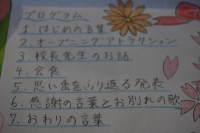 プログラム
1. はじめの言葉
2. オープニングアトラクション
3. 校長先生のお話
4. 会食
5. 思い出をふり返る発表
6. 感謝の言葉とお別れの歌
7. おわりの言葉